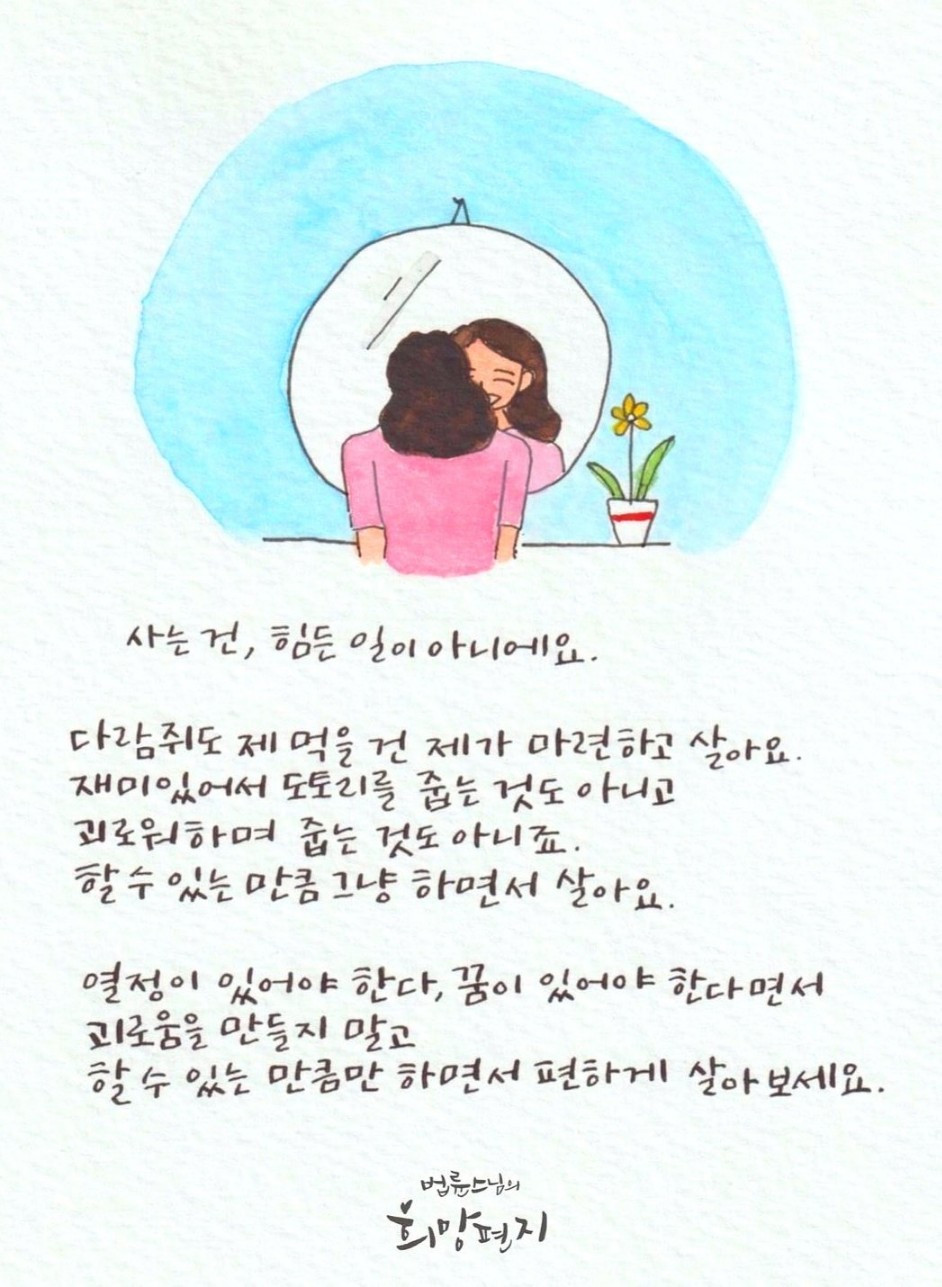 사는 건, 힘든 일이 아니에요.
다람쥐도 제 먹을 건 제가 마련하고 살아요.
재미있어서 도토리를 줍는 것도 아니고
괴로워하며 줍는 것도 아니죠.
할 수 있는 만큼 그냥 하면서 살아요.
열정이 있어야 한다, 꿈이 있어야 한다면서
괴로움을 만들지 말고
할 수 있는 만큼만 하면서 편하게 살아 보세요.
법륜스님의
희망편지